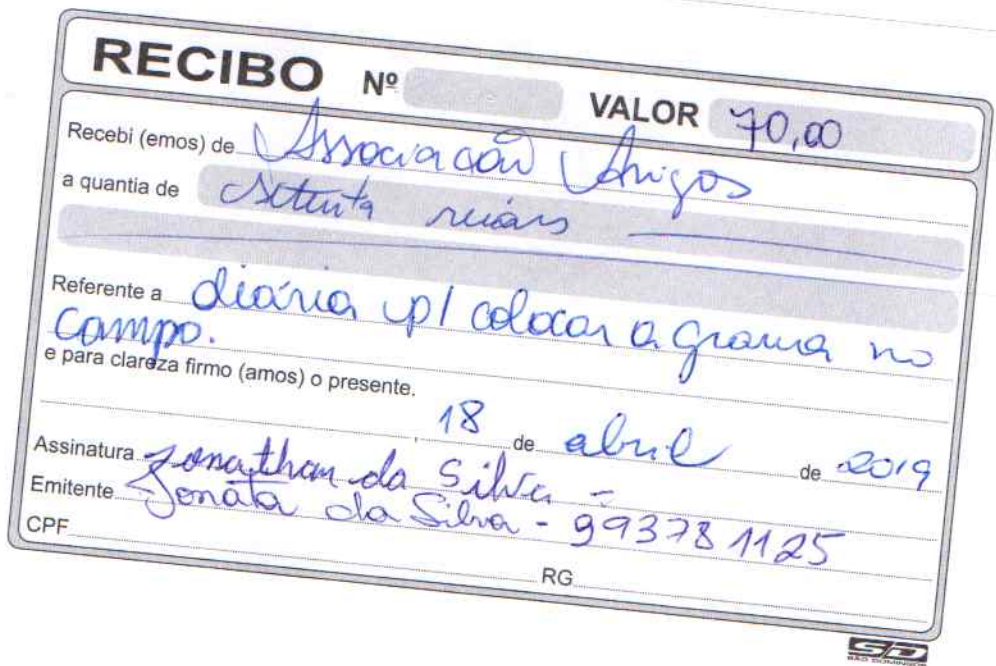 RECIBO Nº VALOR 70,00
Recebi (emos) de Associação Amigos
a quantia de setenta reais
Referente a diária p/ colocar a grama no
campo.
e para clareza firmo (amos) o presente.
, 18 de abril de 2019
Assinatura Jonathan da Silva -
Emitente Jonata da Silva - 993781125
CPF RG
SD
SÃO DOMINGOS